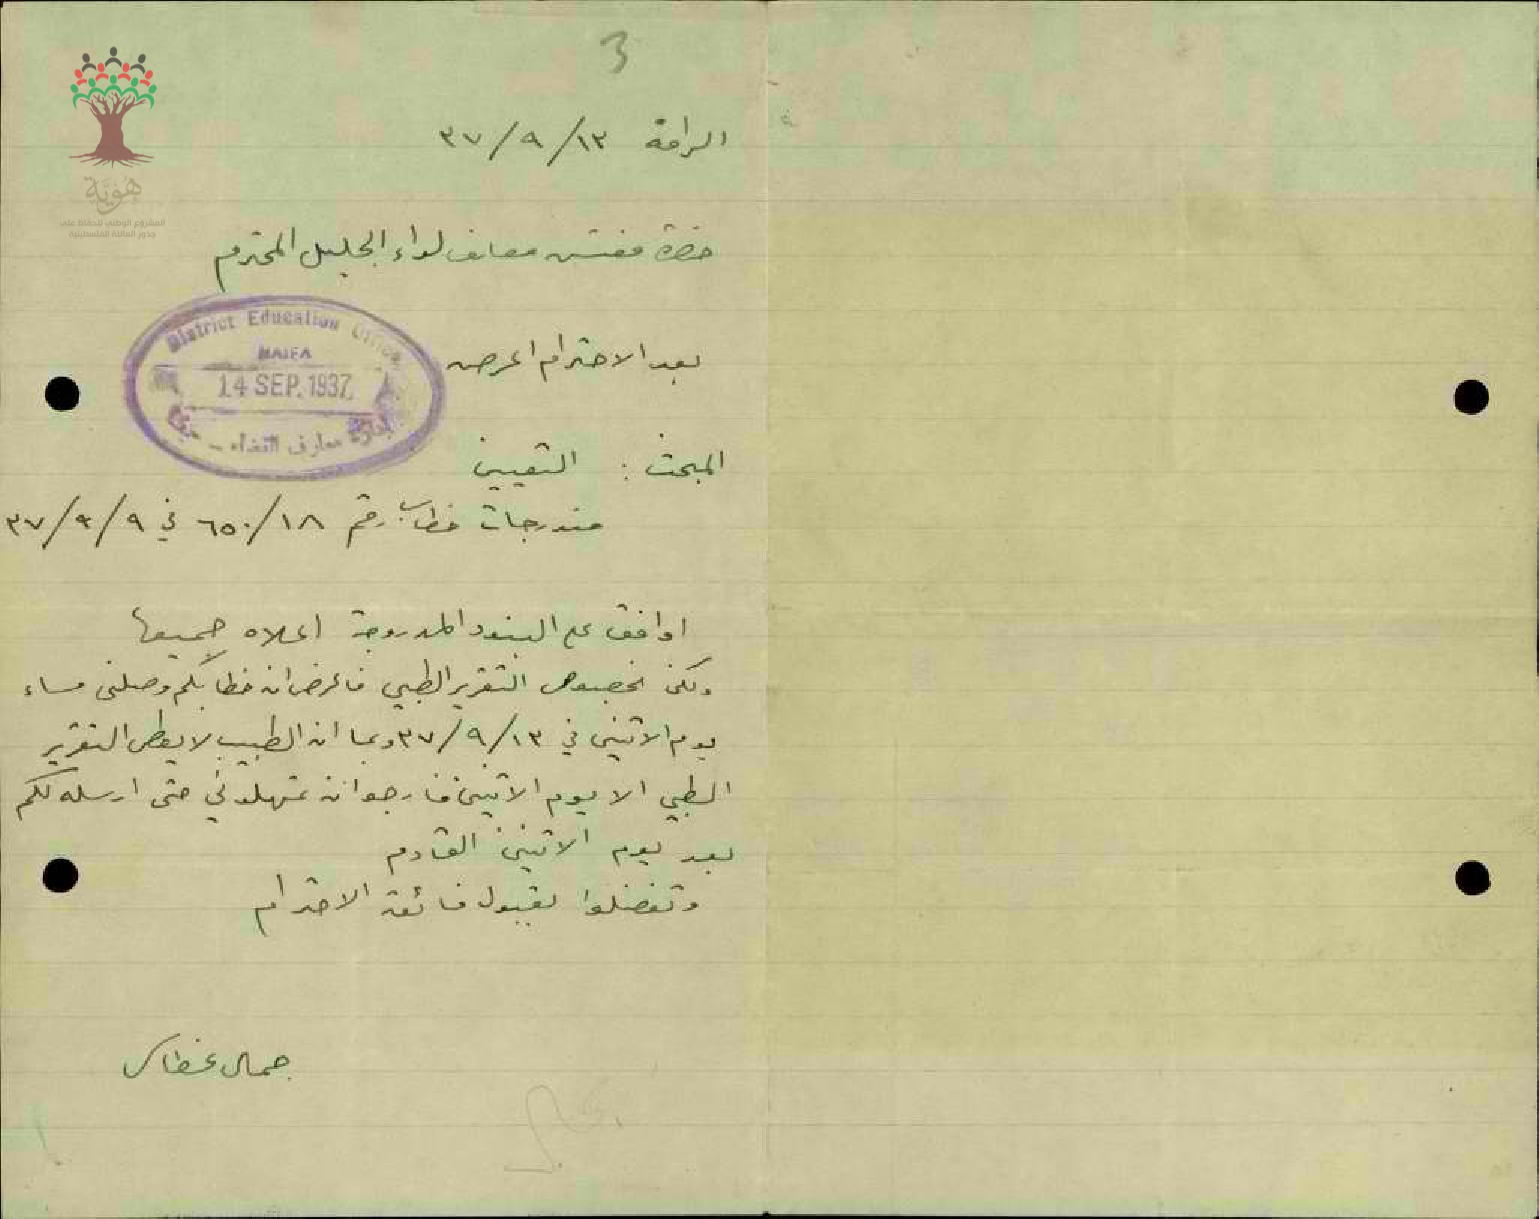 3
الرامة ١٣/٩/٣٧
هُوِيَّة
المشروع الوطني للحفاظ على
جذور العائلة الفلسطينية
حضرة مفتش معارف لواء الجليل المحترم
District Education Office
HAIFA
14 SEP. 1937
إدارة معارف القضاء - حيفا
بعد الاحترام اعرض
المبحث : التعيين
مندرجات خطاب رقم ٦٥٠/١٨ في ٩/٩/٣٧
اوافق على البنود المدروجة اعلاه جميعها
ولكن بخصوص التقرير الطبي فاعرض ان خطابكم وصلني مساء
يوم الاثنين في ١٣/٩/٣٧ وبما ان الطبيب لا يعطي التقرير
الطبي الا يوم الاثنين فارجو ان تمهلوني حتى ارسله لكم
بعد يوم الاثنين القادم
وتفضلوا بقبول فائق الاحترام
جمال غطاس